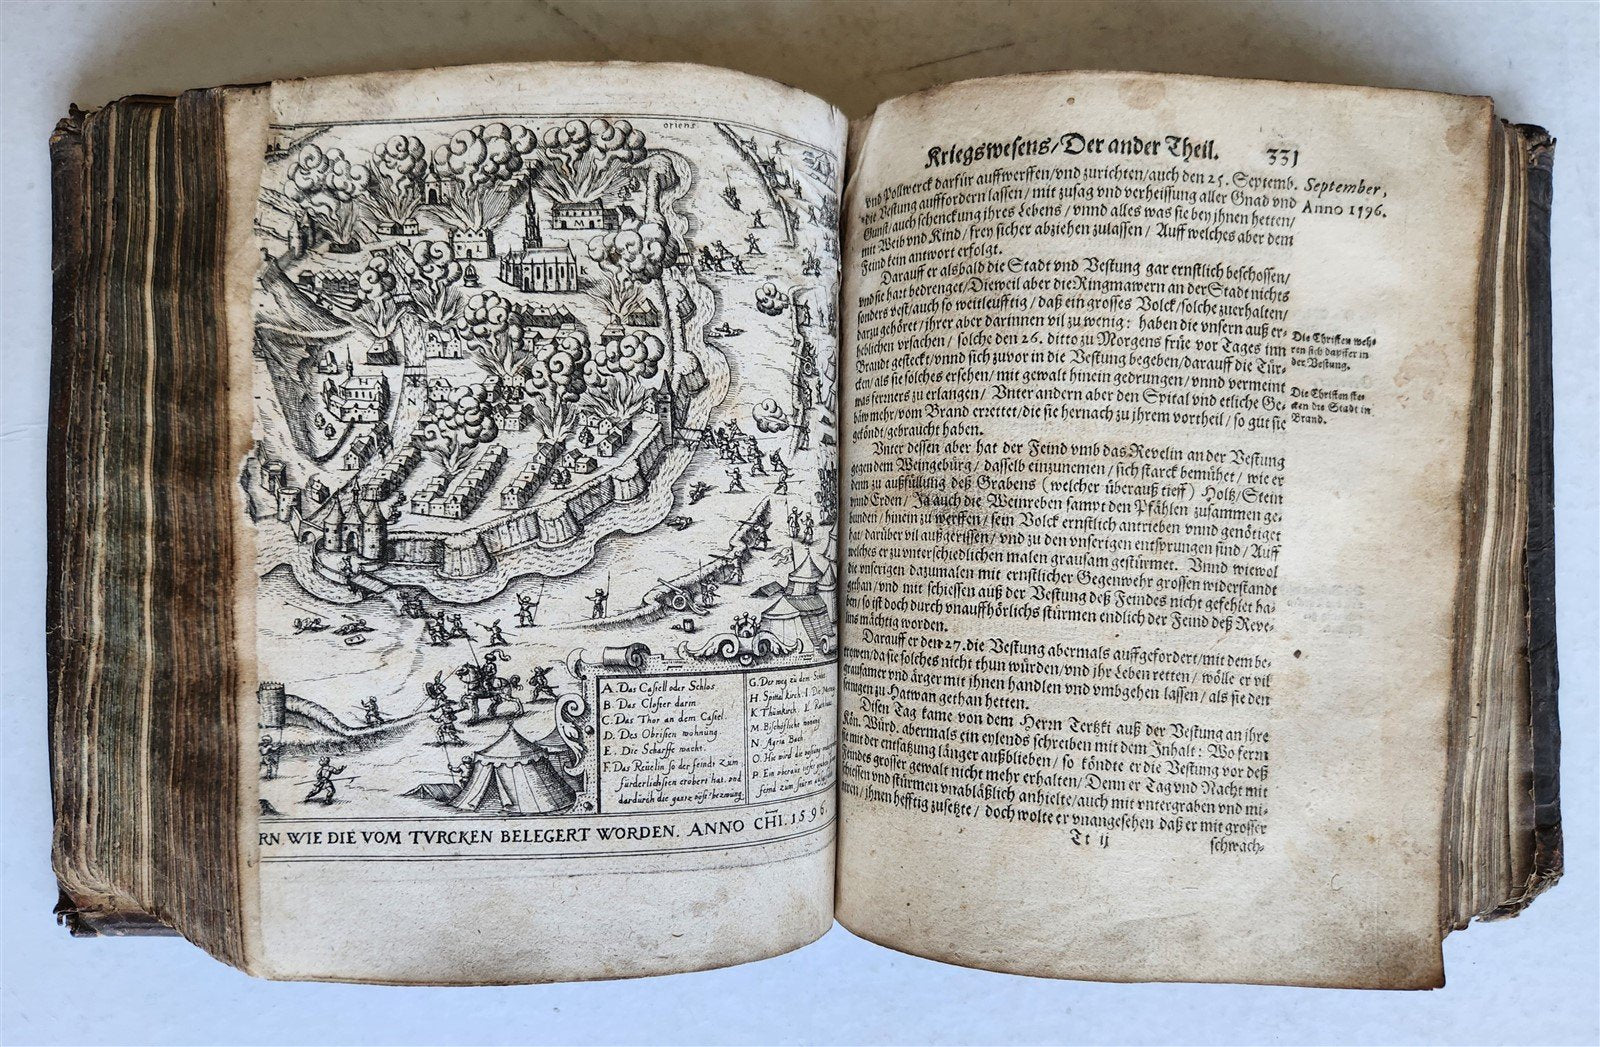 oriens.
K
M
N
A. Das Castell oder Schlos
B. Das Closter darin
C. Das Thor an dem Castel.
D. Des Obristen wohnung
E. Die Scharffe wacht.
F. Das Reuelin so der feindt zum
fürderlichsten erobert hat. vnd
dardurch die gantze vöst bezwung
G. Der weg zu dem Schlos
H. Spittal kirch. I. Die
K. Thumkirch. L. Rathaus
M. Bischofliche wonung
N. Agria Bach
O. Hie wird die vestung
P. Ein oberaus
feind zum sturm
RN. WIE DIE VOM TVRCKEN BELEGERT WORDEN. ANNO CHI. 1596.
Kriegswesens/Der ander Theil. 331
vnd Pollwerck darfür auffwerffen/vnd zurichten/auch den 25. Septemb.
die Vestung aufffordern lassen/mit zusag vnd verheissung aller Gnad vnd
Gunst/auch schenckung jhres Lebens/vnnd alles was sie bey jhnen hetten/
mit Weib vnd Kind/frey sicher abziehen zulassen/Auff welches aber dem
Feind kein antwort erfolgt.
September,
Anno 1596.
Darauff er alsbald die Stadt vnd Vestung gar ernstlich beschossen/
vnd sie hart bedrenget/Dieweil aber die Ringmawern an der Stadt nichts
sonders vest/auch so weitleufftig/daß ein grosses Volck/solche zuerhalten/
darzu gehöret/jhrer aber darinnen vil zu wenig: haben die vnsern auß er-
heblichen vrsachen/solche den 26. ditto zu Morgens früe vor Tages inn
Brandt gesteckt/vnnd sich zuvor in die Vestung begeben/darauff die Tür-
cken/als sie solches ersehen/mit gewalt hinein gedrungen/vnnd vermeint
was fermers zu erlangen/Vnter andern aber den Spital vnd etliche Ge-
häw mehr/vom Brand errettet/die sie hernach zu jhrem vortheil/so gut sie
geköndt/gebraucht haben.
Die Christen weh-
ren sich dapffer in
der Vestung.
Die Christen ste-
cken die Stadt in
Brand.
Vnter dessen aber hat der Feind vmb das Revelin an der Vestung
gegen dem Weingebürg/dasselb einzunemen/sich starck bemühet/wie er
denn zu außfüllung deß Grabens (welcher überauß tieff) Holtz/Stein
vnnd Erden/Ja auch die Weinreben sampt den Pfählen zusammen ge-
bunden/hinein zu werffen/sein Volck ernstlich antrieben vnnd genötiget
hat/darüber vil außgerissen/vnd zu den vnserigen entsprungen sind/Auff
welches er zu vnterschiedlichen malen grausam gestürmet. Vnnd wiewol
die vnserigen dazumalen mit ernstlicher Gegenwehr grossen widerstandt
gethan/vnd mit schiessen auß der Vestung deß Feindes nicht gefehlet ha-
ben/so ist doch durch vnauffhörlichs stürmen endlich der Feind deß Reve-
lins mächtig worden.
Darauff er den 27. die Vestung abermals auffgefordert/mit dem be-
trowen/da sie solches nicht thun würden/vnd jhr Leben retten/wölle er vil
grausamer vnd ärger mit jhnen handlen vnd vmbgehen lassen/als sie den
jenigen zu Hatwan gethan hetten.
Disen Tag kame von dem Herrn Tertzki auß der Vestung an jhre
Kön. Würd. abermals ein eylends schreiben mit dem Inhalt: Wo ferrn
sie mit der entsatzung länger außblieben/so köndte er die Vestung vor deß
Feindes grosser gewalt nicht mehr erhalten/Denn er Tag vnd Nacht mit
schiessen vnd stürmen vnabläßlich anhielte/auch mit vntergraben vnd mi-
niren/jhnen hefftig zusetzte/doch wolte er vnangesehen daß er mit grosser
Tt ij schwach-